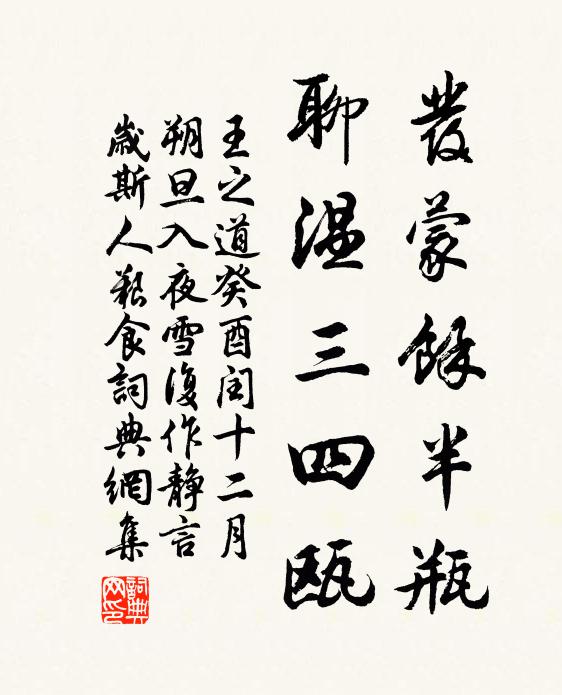 發蒙餘半瓶
聊温三四甌
王之道癸酉閏十二月
朔旦入夜雪復作靜言
歲斯人艱食詞典網集
詞典
网印